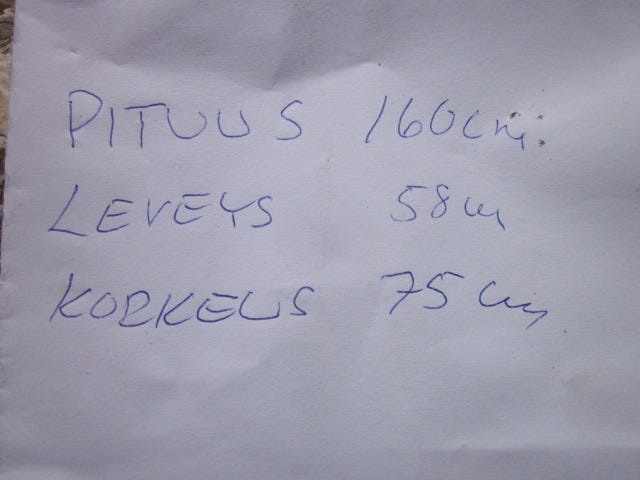 PITUUS 160cm
LEVEYS 58cm
KORKEUS 75cm